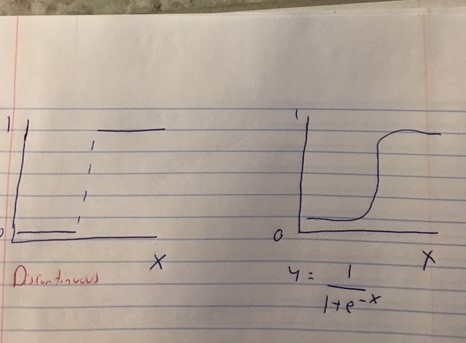 1
0
X
Discontinuous
1
0
X
y = 1
1+e^-x